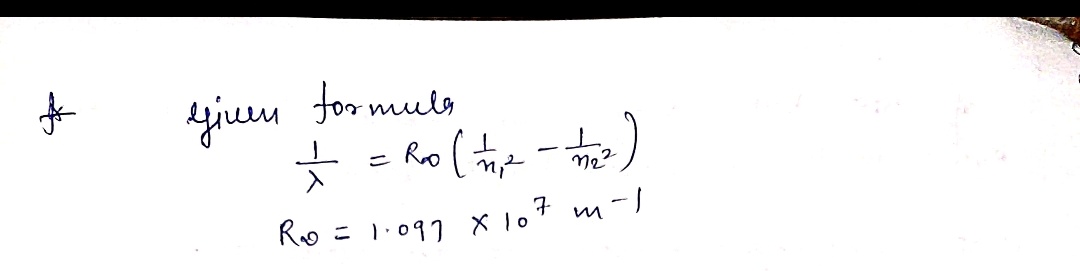 given formula
1/λ = R∞ (1/n₁² - 1/n₂²)
R∞ = 1.097 × 10⁷ m⁻¹